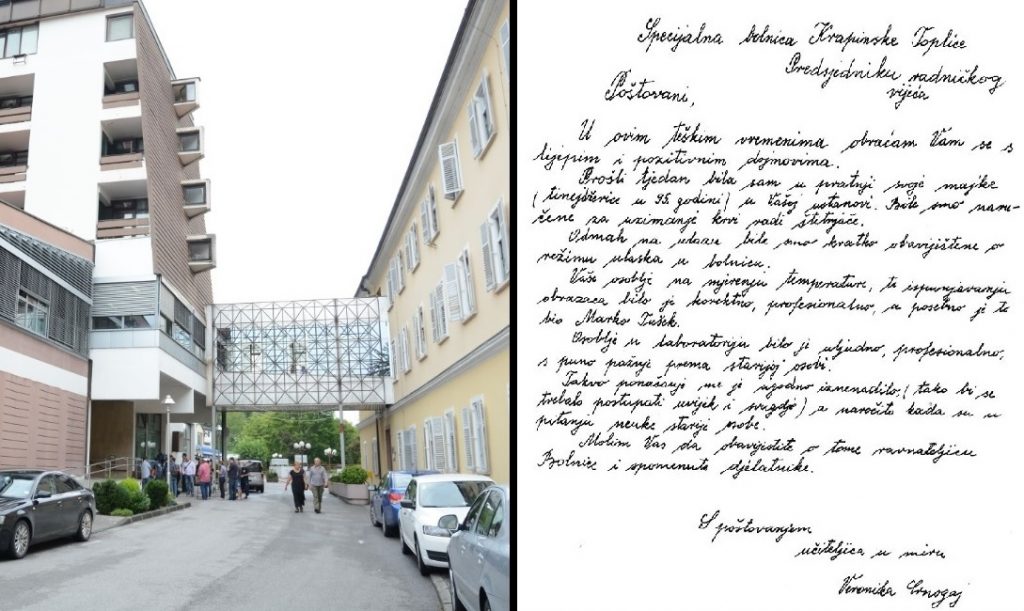 Specijalna bolnica Krapinske Toplice
Predsjedniku radničkog
vijeća
Poštovani,
U ovim teškim vremenima obraćam Vam se s
lijepim i pozitivnim dojmovima.
Prošli tjedan bila sam u pratnji svoje majke
(tinejdžerice u 95. godini) u Vašoj ustanovi. Bile smo naru-
čene za uzimanje krvi radi štitnjače.
Odmah na ulazu bile smo kratko obaviještene o
režimu ulaska u bolnicu.
Vaše osoblje na mjerenju temperature, te ispunjavanju
obrazaca bilo je korektno, profesionalno, a posebno je to
bio Marko Tušek.
Osoblje u laboratoriju bilo je uljudno, profesionalno,
s puno pažnje prema starijoj osobi.
Takvo ponašanje me je ugodno iznenadilo, (tako bi se
trebalo postupati uvijek i svugdje) a naročito kada su u
pitanju neuke starije osobe.
Molim Vas da obavijestite o tome ravnateljicu
Bolnice i spomenute djelatnike.
S poštovanjem
učiteljica u miru
Veronika Crnogaj